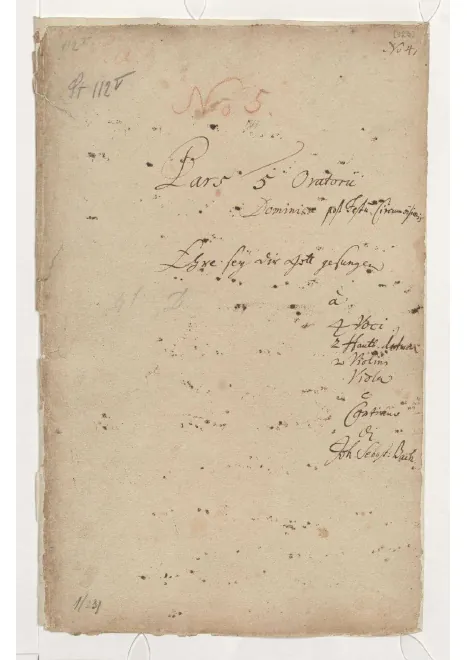 No 4.
Pr 112 V
No 5.
Pars 5 Oratorii
Dominica post Festu. Circumcisionis
Ehre sey dir Gott gesungen
à
4 Voci
2 Hautb. d'Amour
2 Violini
Viola
e
Continuo
di
Joh. Sebast. Bach
1/23)